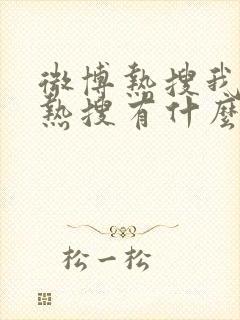 微博熱搜我
熱搜有什麼
松一松